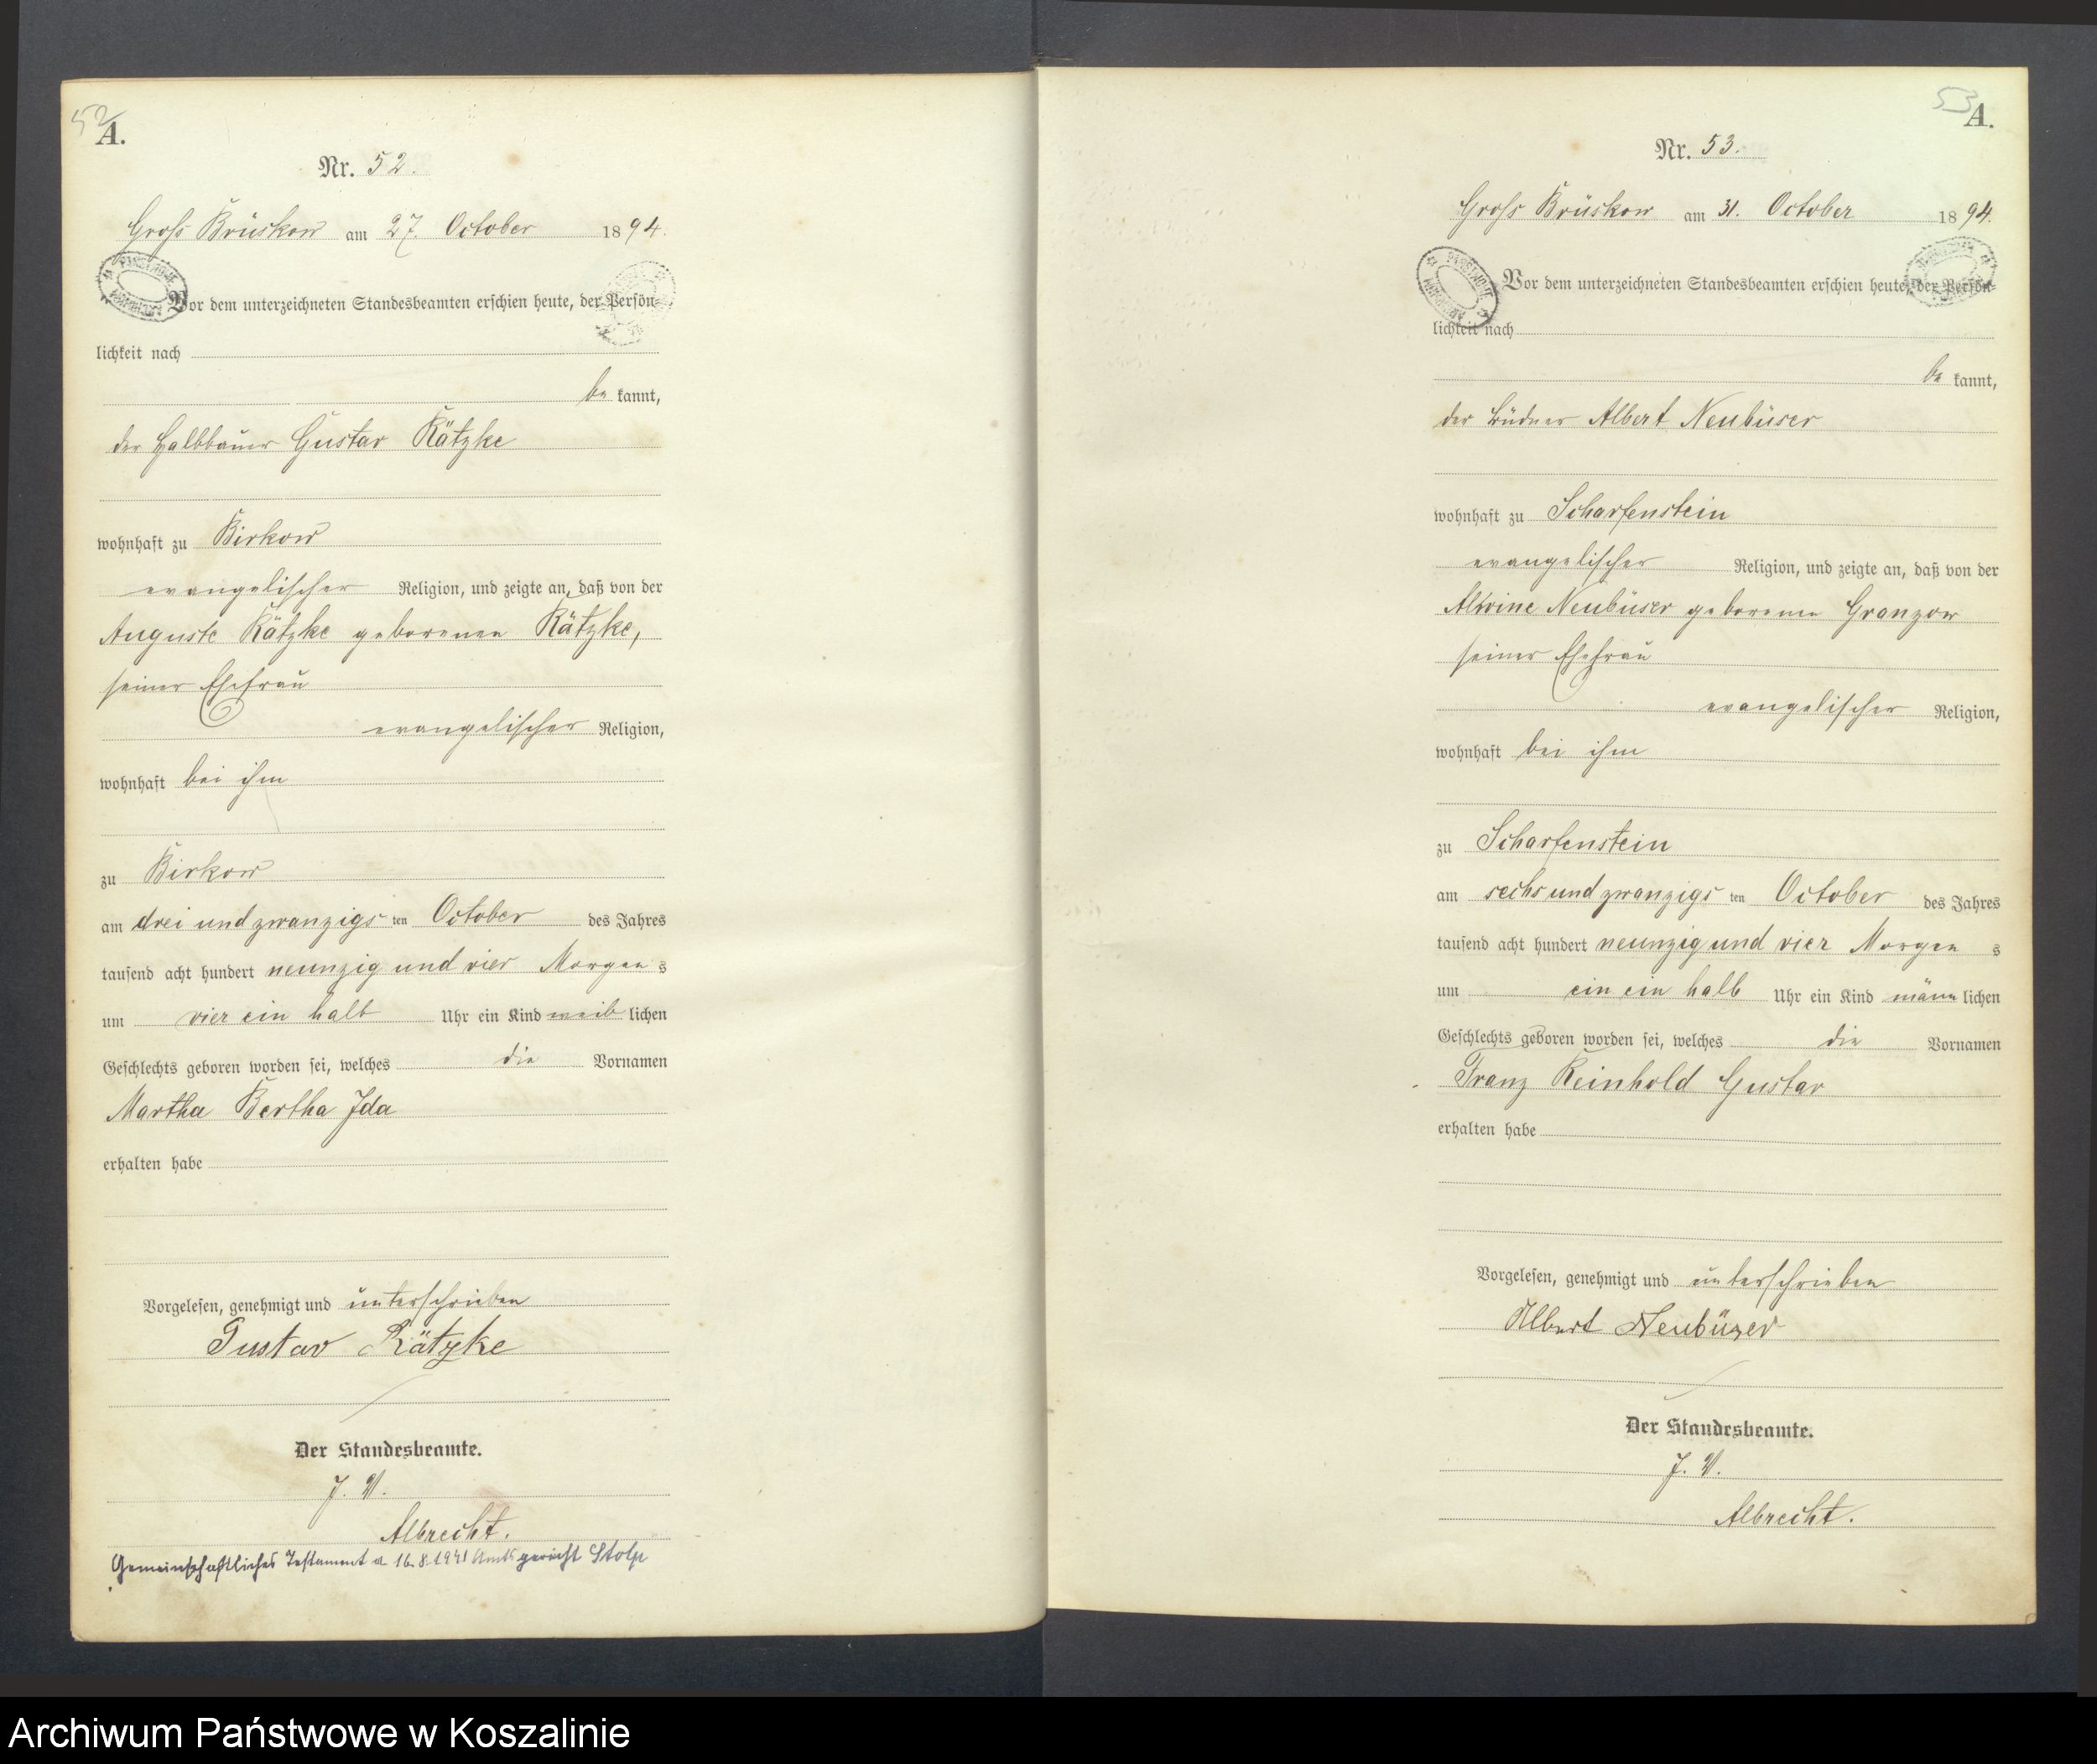 52
A.
Nr. 52.
Gross Brüskow am 27. October 1894.
Vor dem unterzeichneten Standesbeamten erschien heute, der Persön-
lichkeit nach
be kannt,
der Halbbauer Gustav Kätzke
wohnhaft zu Birkow
evangelischer Religion, und zeigte an, daß von der
Auguste Kätzke geborenen Rätzke,
seiner Ehefrau
evangelischer Religion,
wohnhaft bei ihm
zu Birkow
am drei und zwanzigs ten October des Jahres
tausend acht hundert neunzig und vier Morgen s
um vier ein halb Uhr ein Kind weib lichen
Geschlechts geboren worden sei, welches die Vornamen
Martha Bertha Ida
erhalten habe
Vorgelesen, genehmigt und unterschrieben
Gustav Rätzke
Der Standesbeamte.
J. V.
Albrecht.
Gemeinschaftliches Testament v. 16.8.1941 Amtsgericht Stolp
53
A.
Nr. 53.
Gross Brüskow am 31. October 1894.
Vor dem unterzeichneten Standesbeamten erschien heute, der Persön-
lichkeit nach
be kannt,
der Büdner Albert Neubüser
wohnhaft zu Scharfenstein
evangelischer Religion, und zeigte an, daß von der
Alwine Neubüser geborenen Granzow
seiner Ehefrau
evangelischer Religion,
wohnhaft bei ihm
zu Scharfenstein
am sechs und zwanzigs ten October des Jahres
tausend acht hundert neunzig und vier Morgen s
um ein ein halb Uhr ein Kind männ lichen
Geschlechts geboren worden sei, welches die Vornamen
Franz Reinhold Gustav
erhalten habe
Vorgelesen, genehmigt und unterschrieben
Albert Neubüser
Der Standesbeamte.
J. V.
Albrecht.
Archiwum Państwowe w Koszalinie